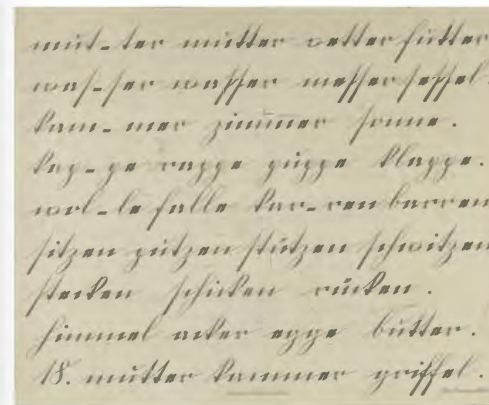 mut-ter mutter vetter futter
was-ser wasser messer sessel.
kam-mer zimmer sonne.
kap-pe rappe puppe klappe.
wol-le falle kar-ren barren
sitzen putzen stutzen schwitzen
stecken schicken rücken.
himmel acker egge butter.
18. mutter kammer griffel.